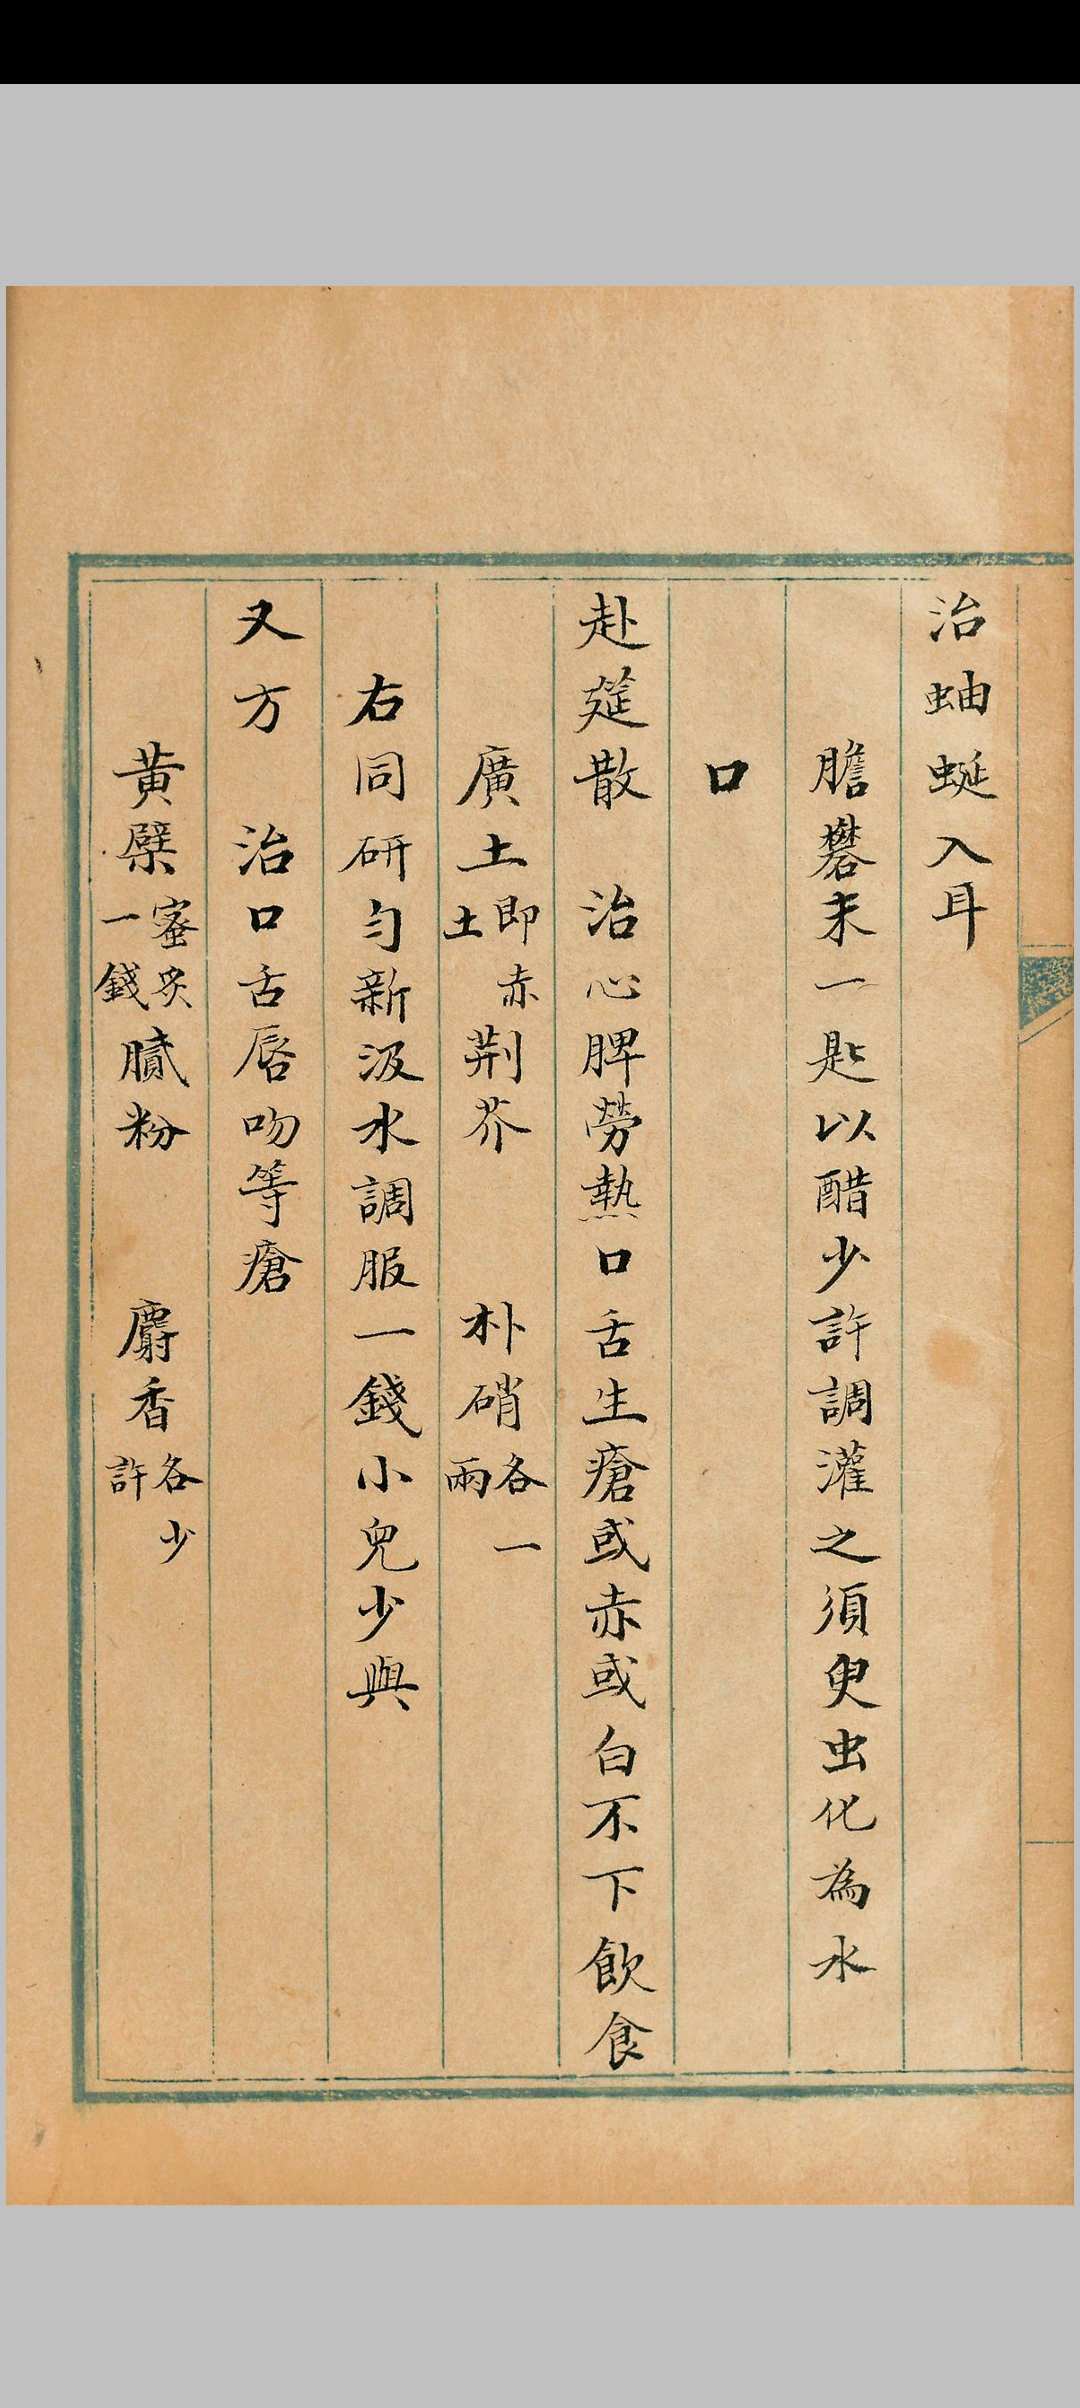 治蚰蜒入耳
膽礬末一匙以醋少許調灌之須臾虫化為水
口
赴筵散　治心脾勞熱口舌生瘡或赤或白不下飲食
廣土即赤土荆芥　朴硝各一兩
右同研勻新汲水調服一錢小兒少與
又方　治口舌唇吻等瘡
黃檗蜜炙一錢膩粉　麝香各少許